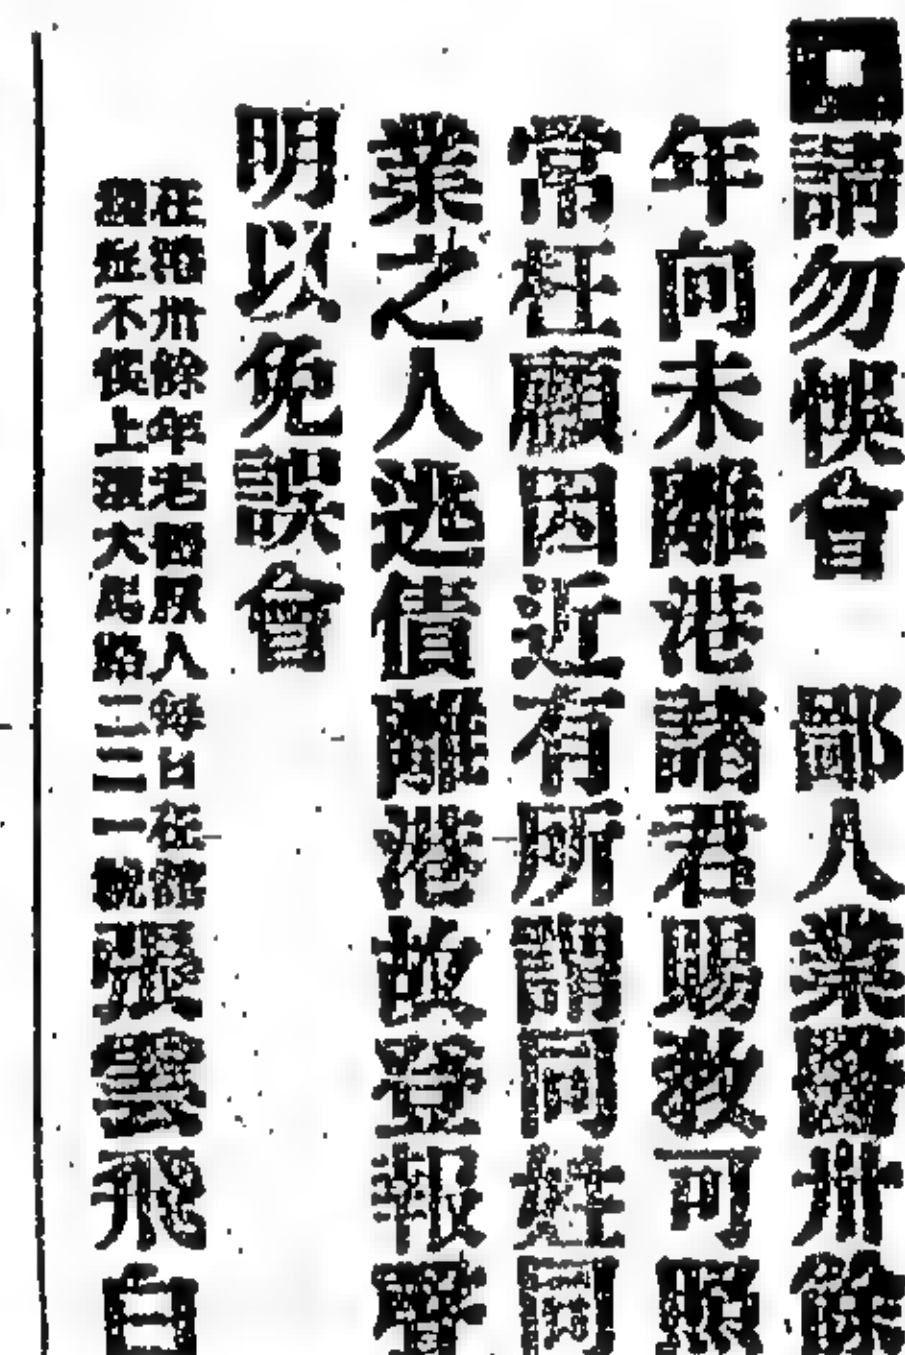 請勿悞會　鄙人業醫卅餘
年向未離港諸君賜敎可照
常枉顧因近有所謂同姓同
業之人逃債離港故登報聲
明以免誤會
在港卅餘年老國原人每日在館
不悞上環大馬路二三一號張雲飛白